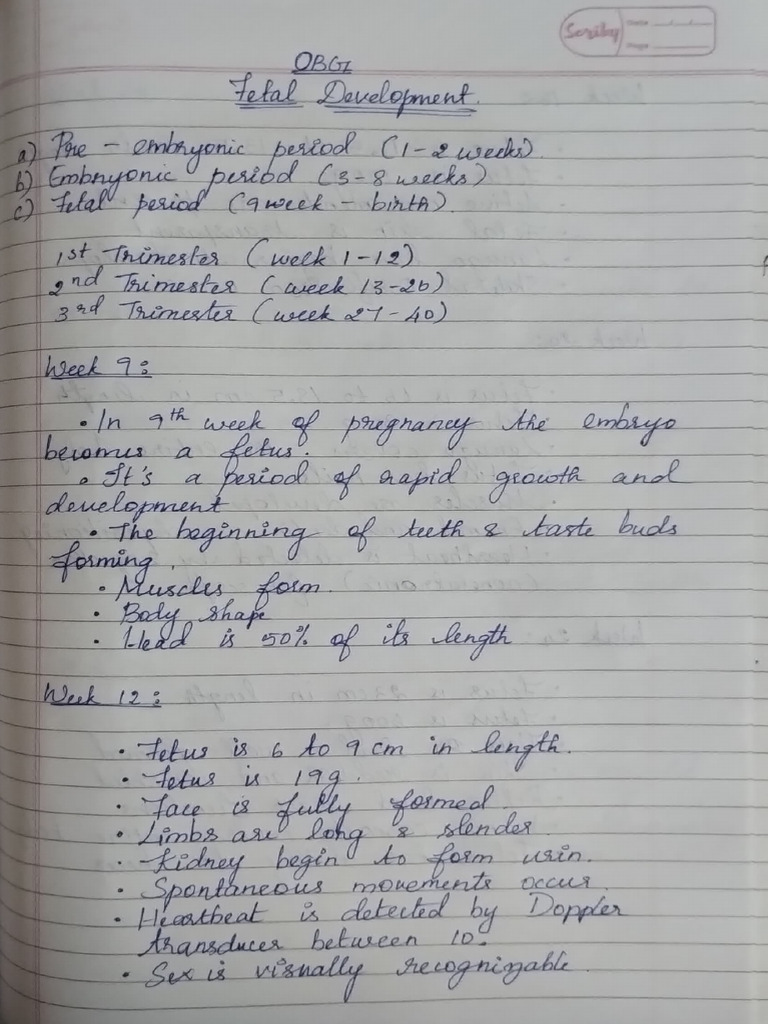 Scriby
Date
Page
OBGy
Fetal Development.
a) Pre - embryonic period (1-2 weeks)
b) Embryonic period (3-8 weeks)
c) Fetal period (9 week - birth).
1st Trimester (week 1-12)
2nd Trimester (week 13-26)
3rd Trimester (week 27-40)
Week 9:
• In 9th week of pregnancy the embryo
becomes a fetus.
• It's a period of rapid growth and
development
• The beginning of teeth & taste buds
forming.
• Muscles form.
• Body shape
• Head is 50% of its length
Week 12:
• Fetus is 6 to 9 cm in length.
• Fetus is 19g.
• Face is fully formed.
• Limbs are long & slender.
• Kidney begin to form urin.
• Spontaneous movements occur.
• Heartbeat is detected by Doppler
transducer between 10.
• Sex is visually recognizable.